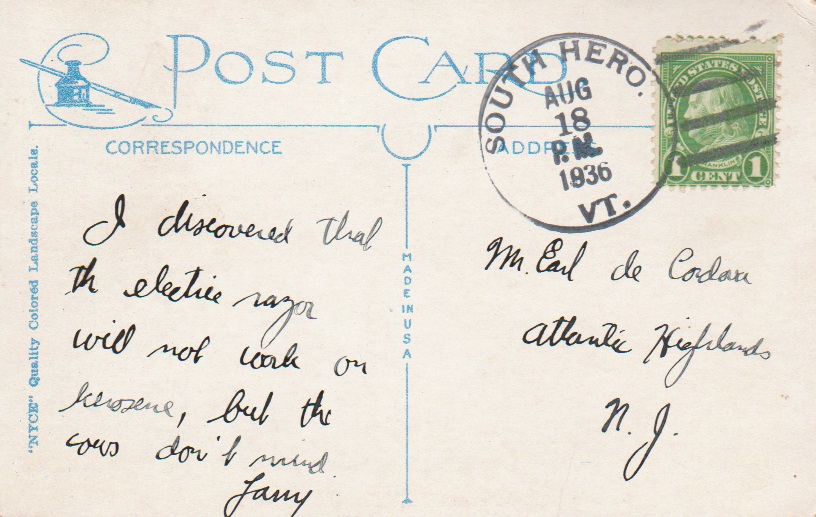 POST CARD
SOUTH HERO.
AUG
18
P.M.
1936
VT.
UNITED STATES POSTAGE
FRANKLIN
1 CENT 1
CORRESPONDENCE
ADDRESS
"NYCE" Quality Colored Landscape Locals.
MADE IN USA
I discovered that
th electric razor
will not work on
kerosene, but the
cows don't mind
Larry
Mr. Earl de Cordova
Atlantic Highlands
N. J.